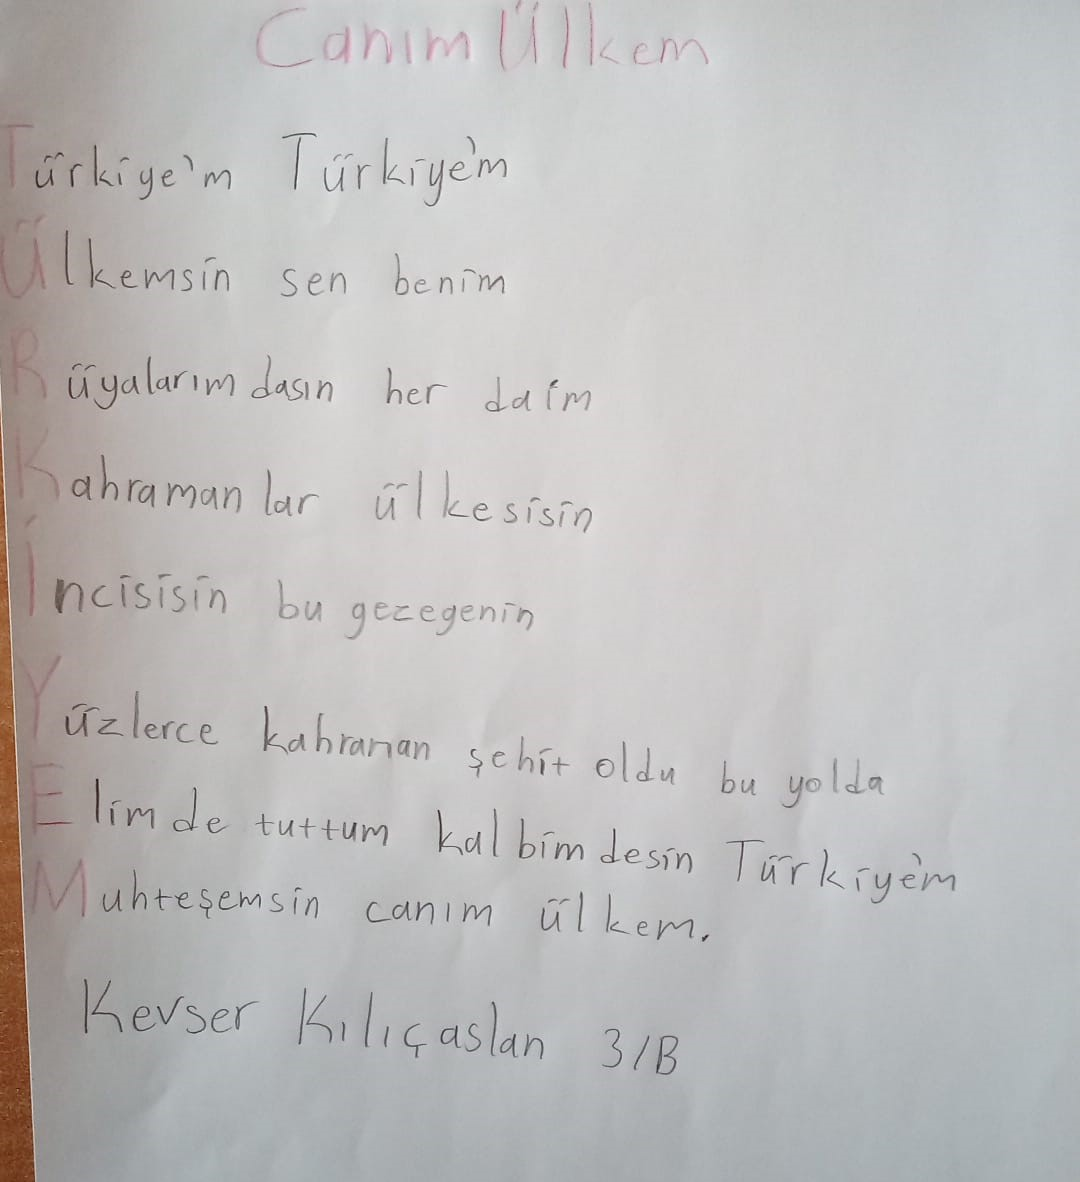 Canım Ülkem
Türkiye'm Türkiye'm
Ülkemsin sen benim
Rüyalarımdasın her daim
Kahramanlar ülkesisin
İncisisin bu gezegenin
Yüzlerce kahraman şehit oldu bu yolda
Elimde tuttum kalbimdesin Türkiye'm
Muhteşemsin canım ülkem.
Kevser Kılıçaslan 3/B